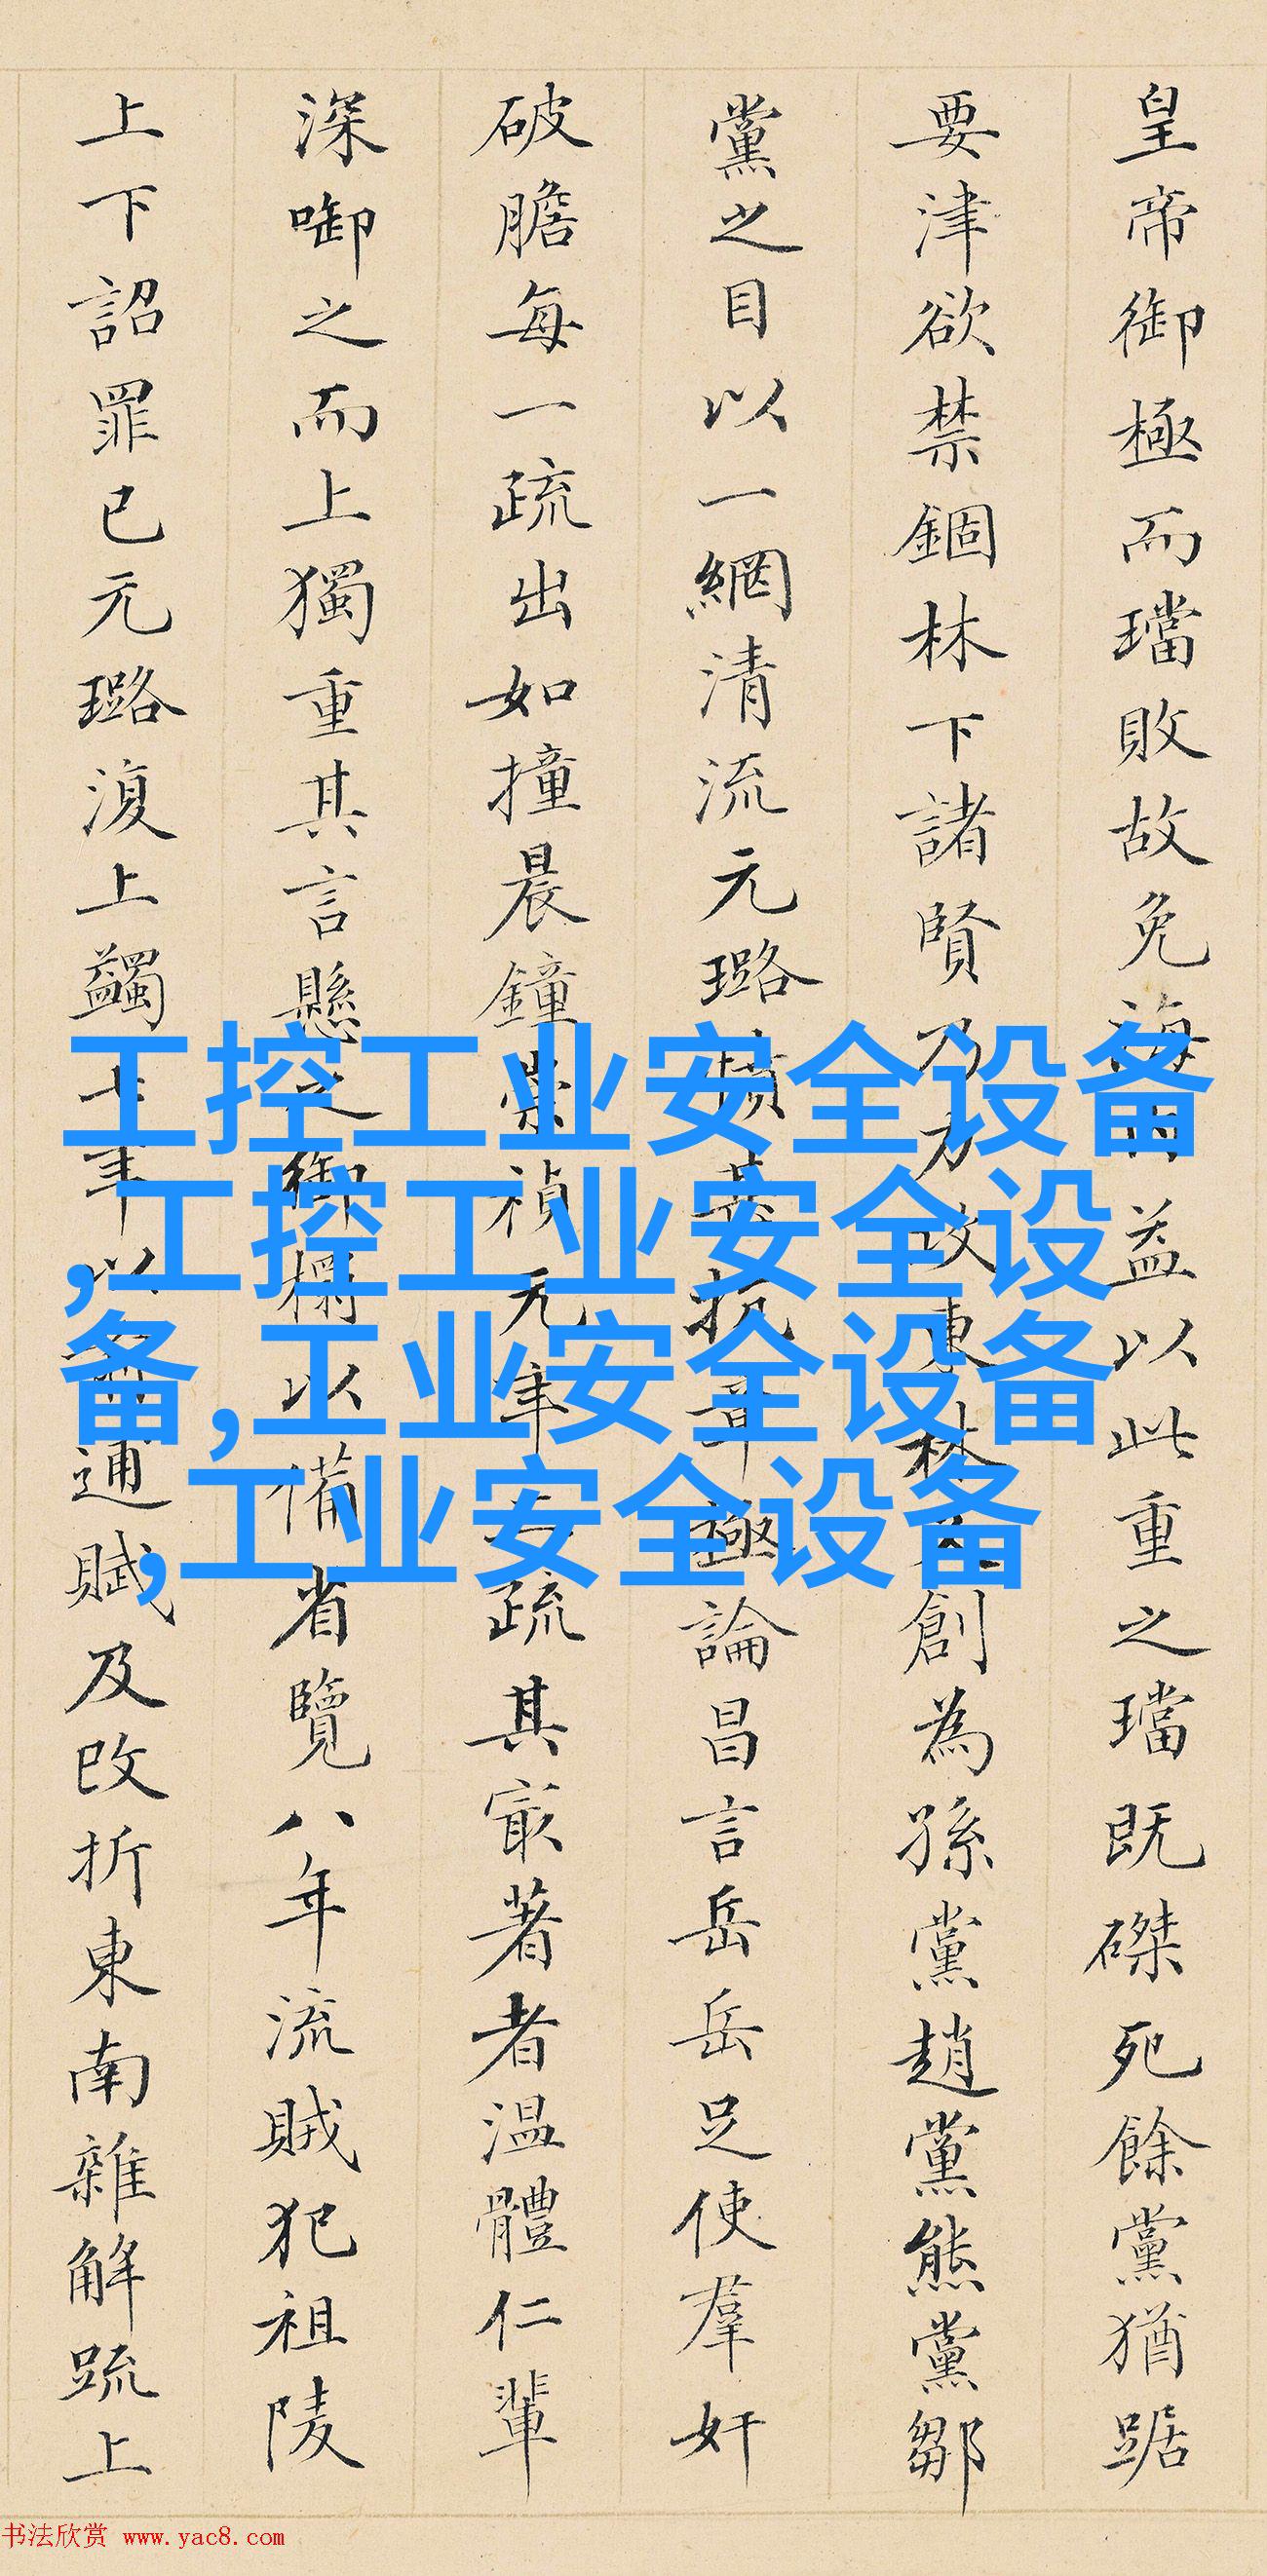 皇帝御極而璫敗故免誨益以此重之璫既磔死餘黨猶踞
要津欲禁錮林下諸賢乃力攻東林創為孫黨趙黨熊黨鄒
黨之目以一網清流元璐憤甚抗章極論昌言岳岳足使羣奸
破膽每一疏出如撞晨鐘崇禎元年疏其㝡著者溫體仁輩
深啣之而上獨重其言懸之御屏以備省覽八年流賊犯祖陵
上下詔罪已元璐復上蠲七年以前逋賦及改折東南雜解疏上
工控工业安全设备
,工控工业安全设
备,工业安全设备
,工业安全设备
书法欣赏 www.yac8.com